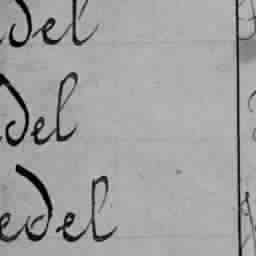 del
del
edel